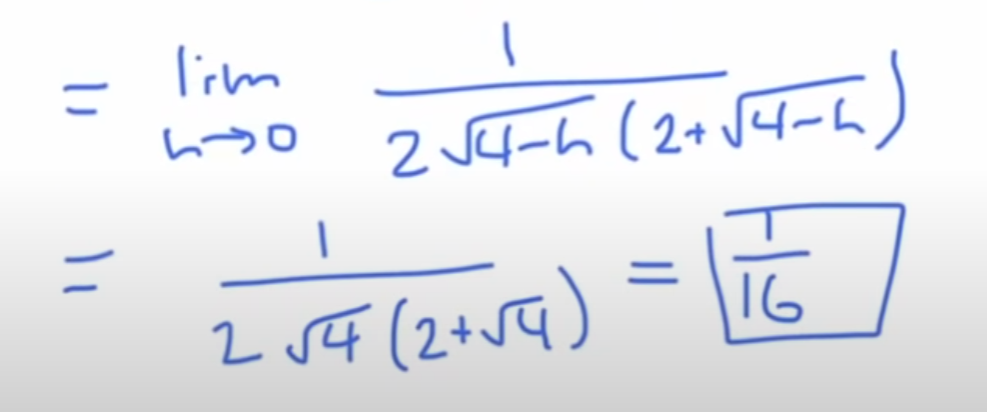 = lim h→0 1 / 2√4-h (2+√4-h)
= 1 / 2√4 (2+√4) = 1/16